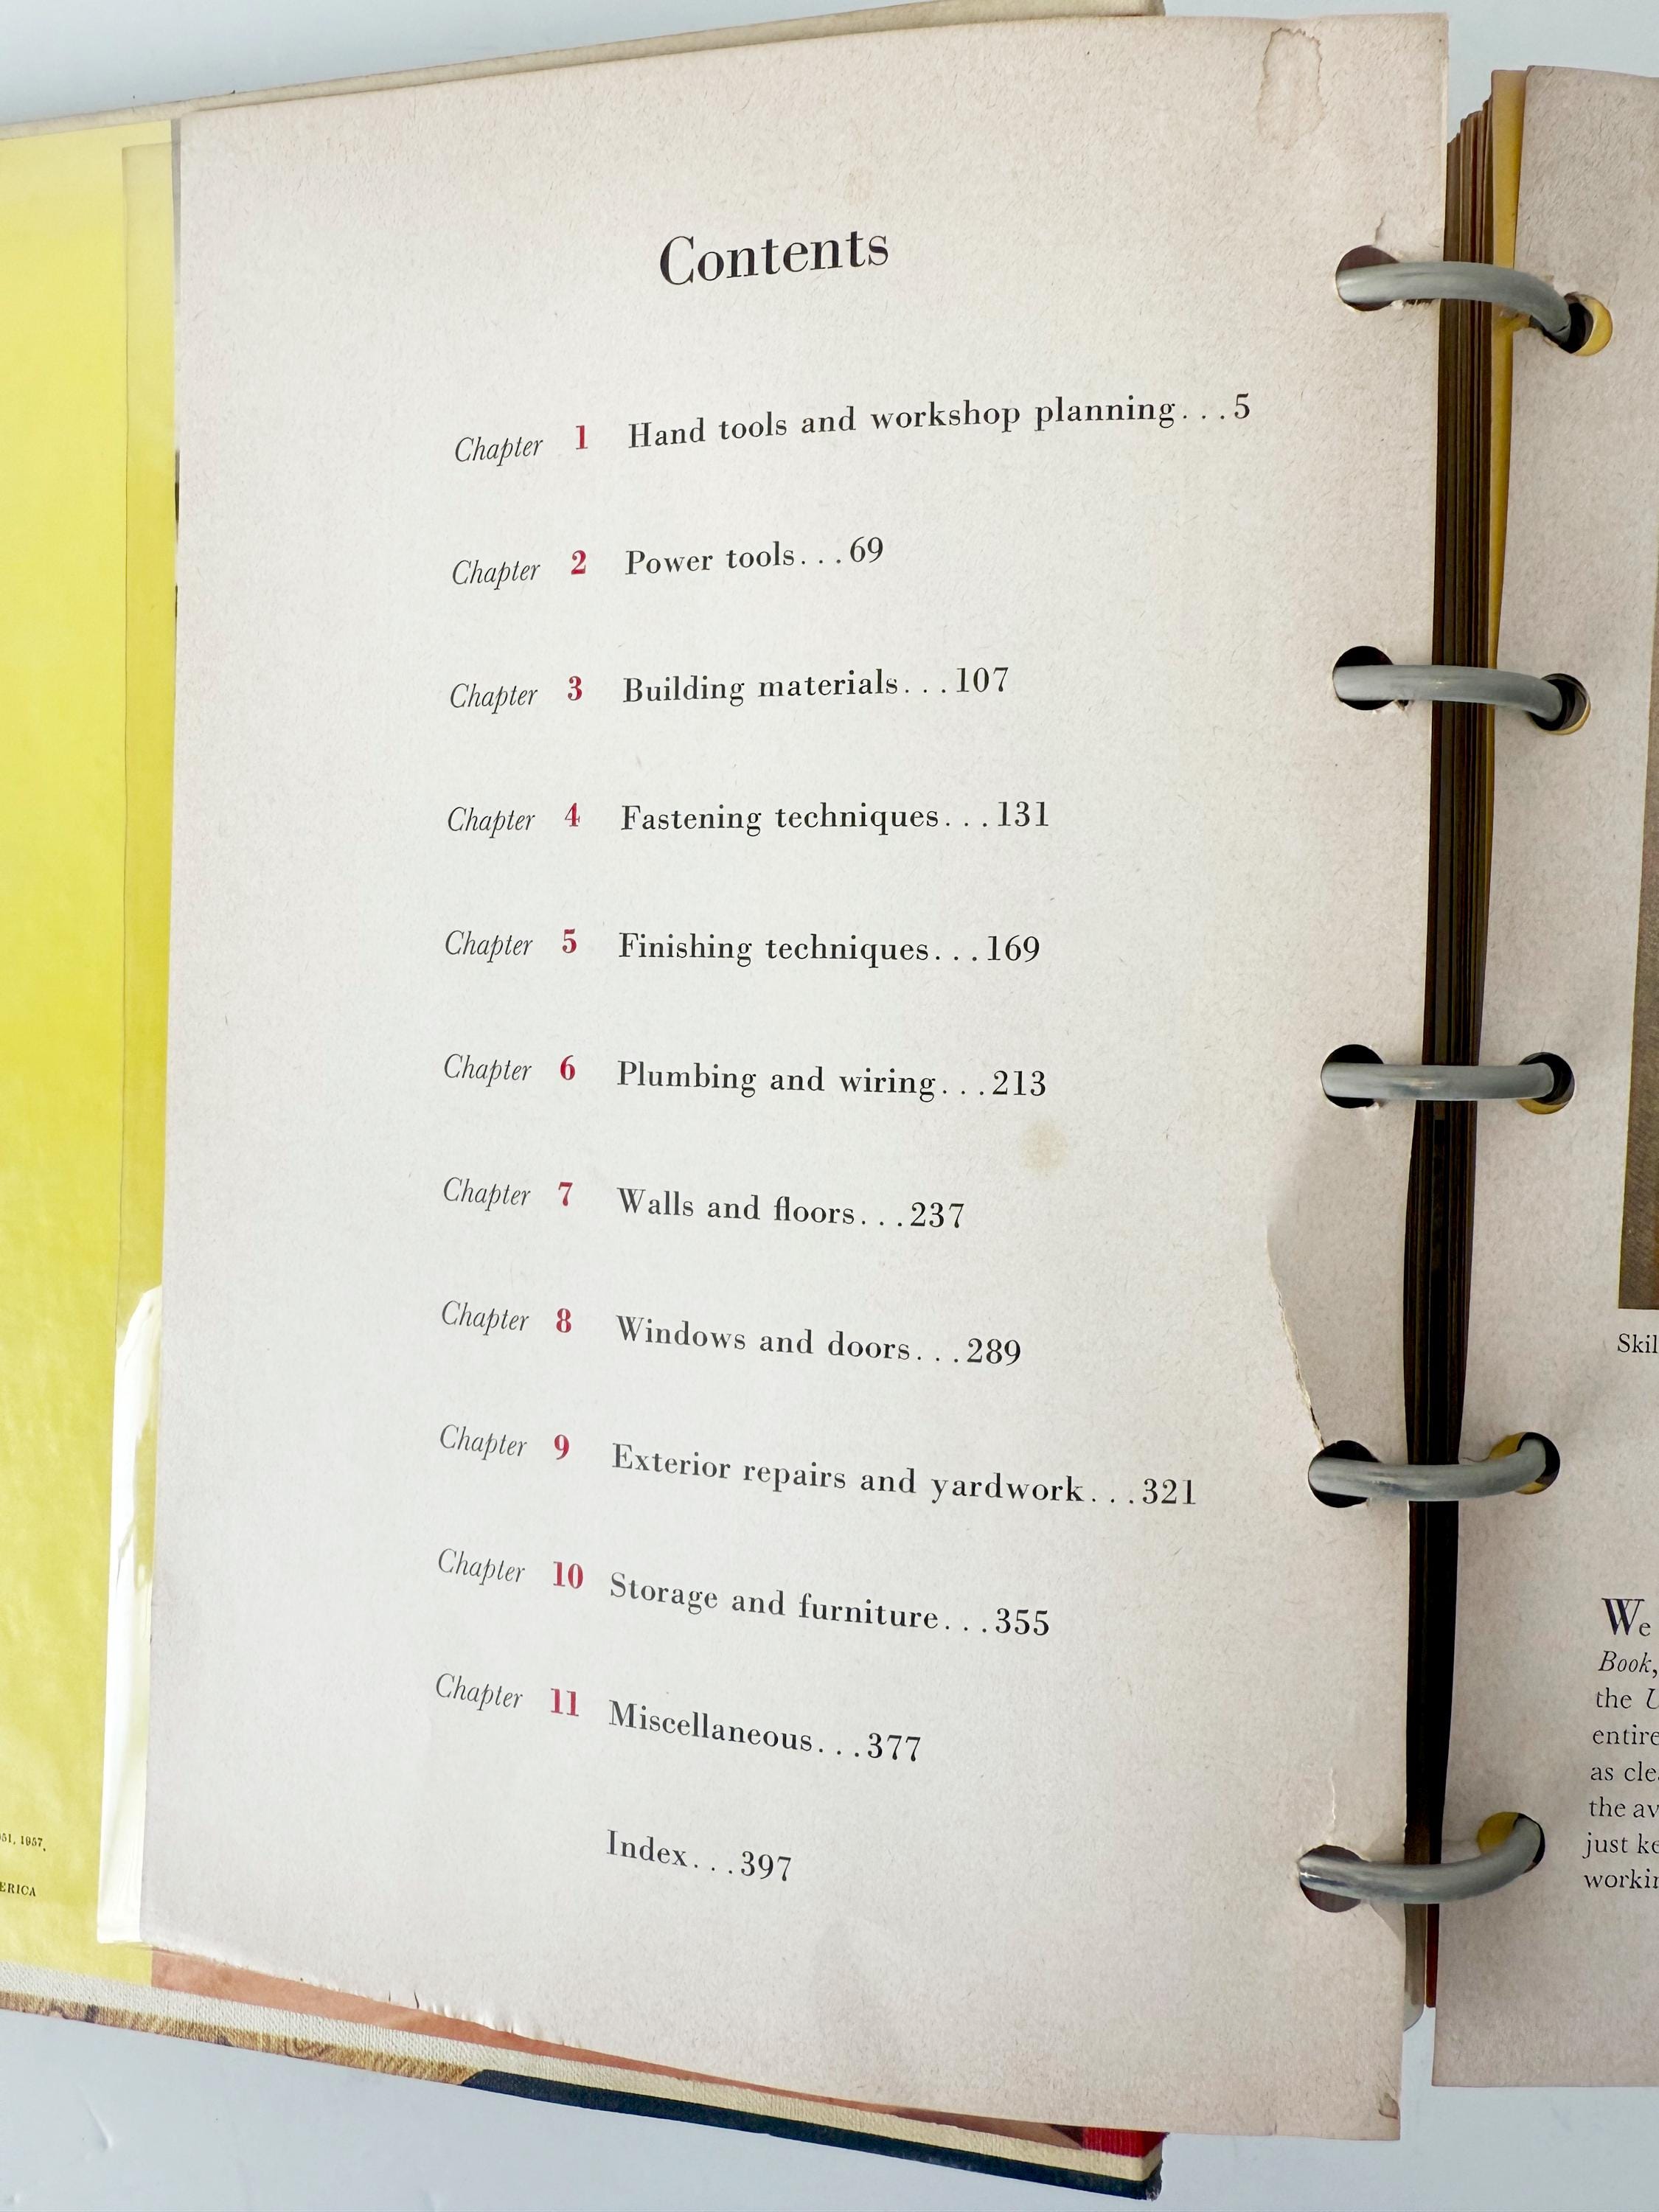 Contents
Chapter 1 Hand tools and workshop planning...5
Chapter 2 Power tools...69
Chapter 3 Building materials...107
Chapter 4 Fastening techniques...131
Chapter 5 Finishing techniques...169
Chapter 6 Plumbing and wiring...213
Chapter 7 Walls and floors...237
Chapter 8 Windows and doors...289
Chapter 9 Exterior repairs and yardwork...321
Chapter 10 Storage and furniture...355
Chapter 11 Miscellaneous...377
Index...397
1957,
We
Book,
the
as
the
just